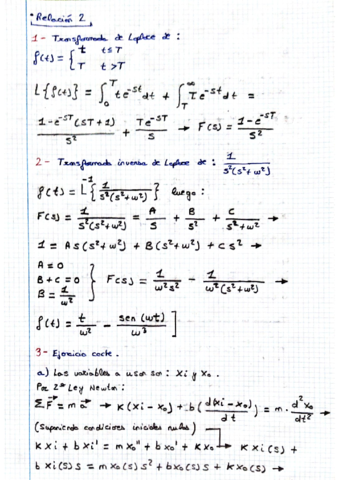 · Relación 2
1 - Transformada de Laplace de :
f(t) = { t t≤T
T t>T
L{f(t)} = ∫₀ᵀ t e^-st dt + ∫_T^∞ T e^-st dt =
(1-e^-sT(sT+1))/s² + Te^-sT/s → F(s) = (1-e^-sT)/s²
2 - Transformada inversa de Laplace de : 1/(s²(s²+w²))
f(t) = L^-1{1/(s²(s²+w²))} luego :
F(s) = 1/(s²(s²+w²)) = A/s + B/s² + C/(s²+w²) →
1 = As(s²+w²) + B(s²+w²) + Cs² →
A = 0
B + C = 0
B = 1/w²
} F(s) = 1/(w²s²) - 1/(w²(s²+w²)) →
f(t) = t/w² - sen(wt)/w³ ]
3 - Ejercicio coche.
a) Las variables a usar son : Xi y Xo.
Por 2ª Ley Newton :
ΣF = ma → K(Xi - Xo) + b(d(Xi - Xo)/dt) = m · d²Xo/dt² →
(Suponiendo condiciones iniciales nulas)
KXi + bXi' = mXo'' + bXo' + KXo → KXi(s) +
bXi(s)s = mXo(s)s² + bXo(s)s + KXo(s) →